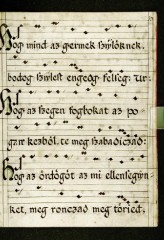 Hog mind az germek szỳlőknek.
bodog szỳlest engeog felseg; Ur:
Hog az szegen fogbokat az po-
gar kezből, te meg szabadiczad:
Hog az ördögöt az mi ellensegün-
ket, meg ronczad meg töried;